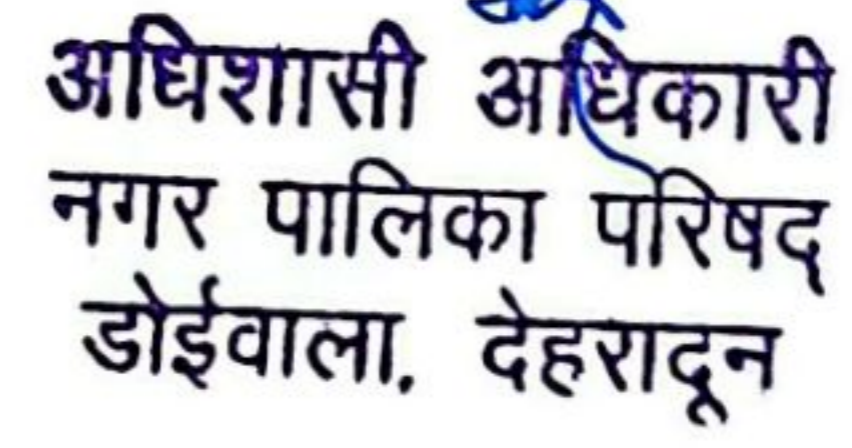 अधिशासी अधिकारी
नगर पालिका परिषद
डोईवाला. देहरादून